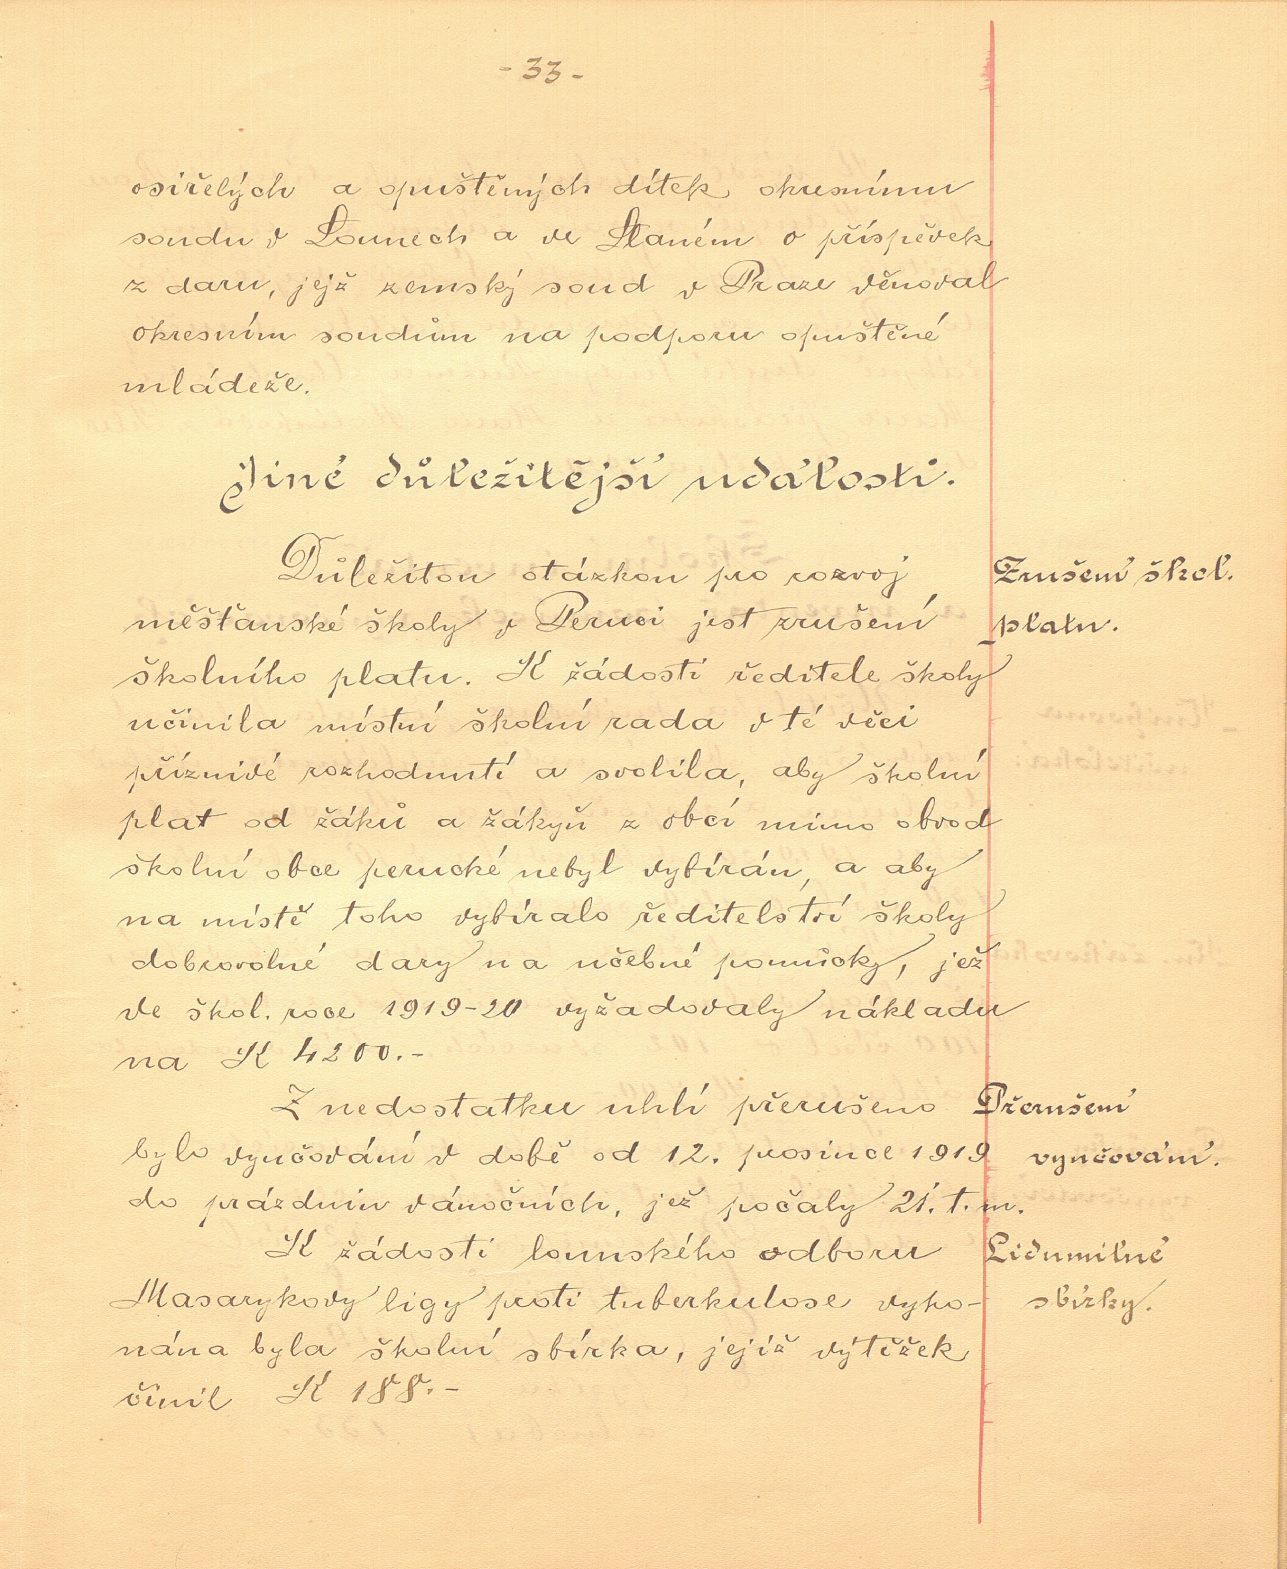 - 33 -
osiřelých a opuštěných dítek okresnímu
soudu v Lounech a ve Slaném o příspěvek
z daru, jejž zemský soud v Praze věnoval
okresním soudům na podporu opuštěné
mládeže.
Jiné důležitější události.
Důležitou otázkou pro rozvoj
Zrušení škol.
měšťanské školy v Peruci jest zrušení
platu.
školního platu. K žádosti ředitele školy
učinila místní školní rada v té věci
příznivé rozhodnutí a svolila, aby školní
plat od žáků a žákyň z obcí mimo obvod
školní obce perucké nebyl vybírán, a aby
na místě toho vybíralo ředitelství školy
dobrovolné dary na učebné pomůcky, jež
ve škol. roce 1919-20 vyžadovaly nákladu
na K 4200.-
Z nedostatku uhlí přerušeno
Přerušení
bylo vyučování v době od 12. prosince 1919
vyučování.
do prázdnin vánočních, jež počaly 21. t. m.
K žádosti lounského odboru
Lidumilné
Masarykovy ligy proti tuberkulose vyko-
sbírky.
nána byla školní sbírka, jejíž výtěžek
činil K 188.-